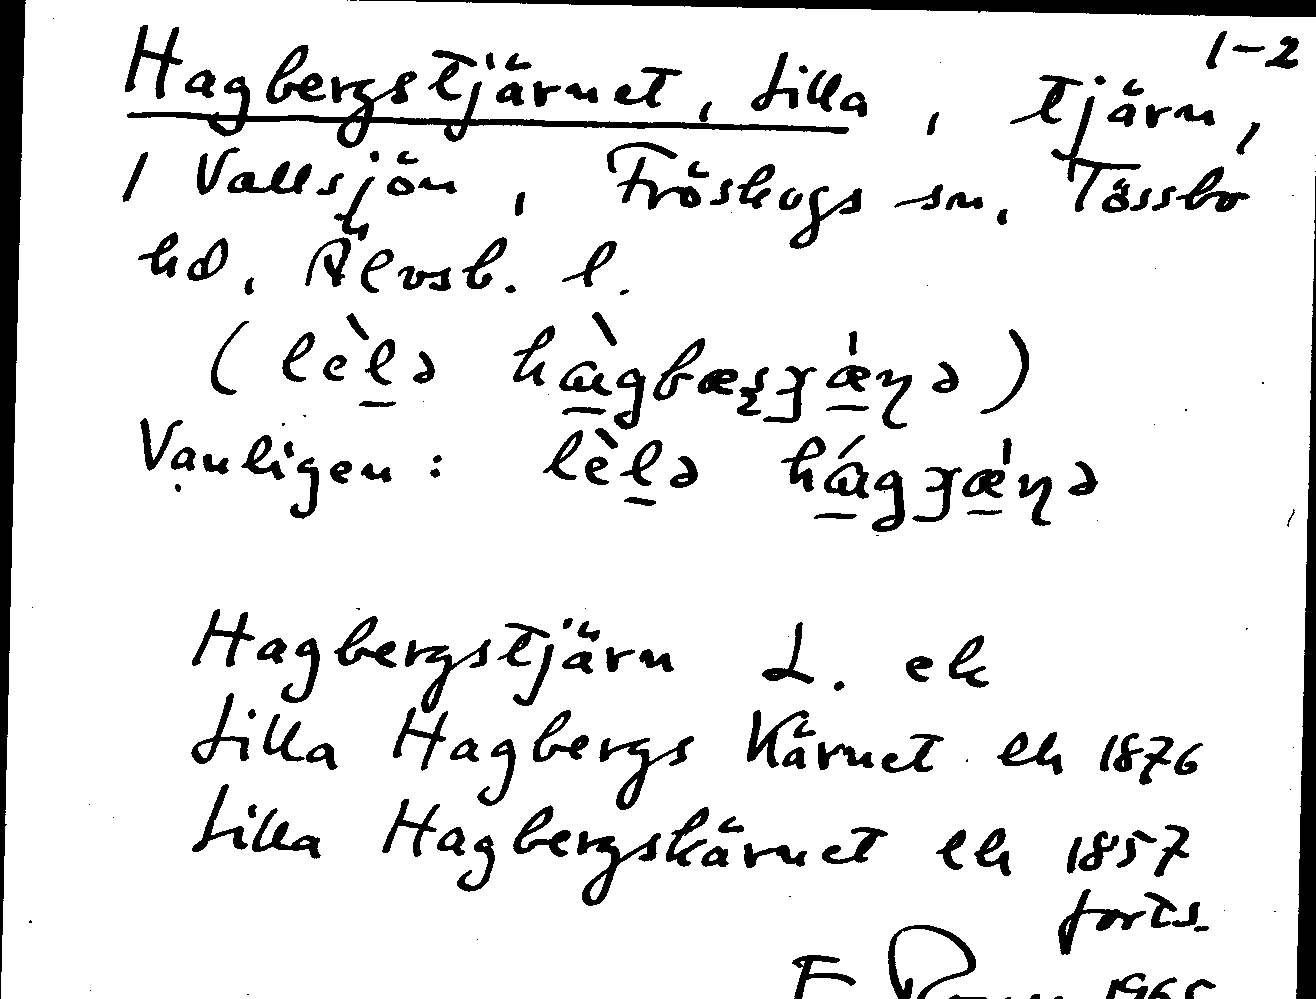 1-2
Hagbergstjärnet, Lilla, tjärn,
/ Vallsjön, Fröskogs sn, Tössbo
hd, Älvsb. l.
(lèlə hàgbæʂɟæ̀ɳə)
Vanligen: lèlə hágɟæ̀ɳə
Hagbergstjärn L. ek
Lilla Hagbergs Kärnet eh 1876
Lilla Hagbergskärnet eh 1857
forts.
1965